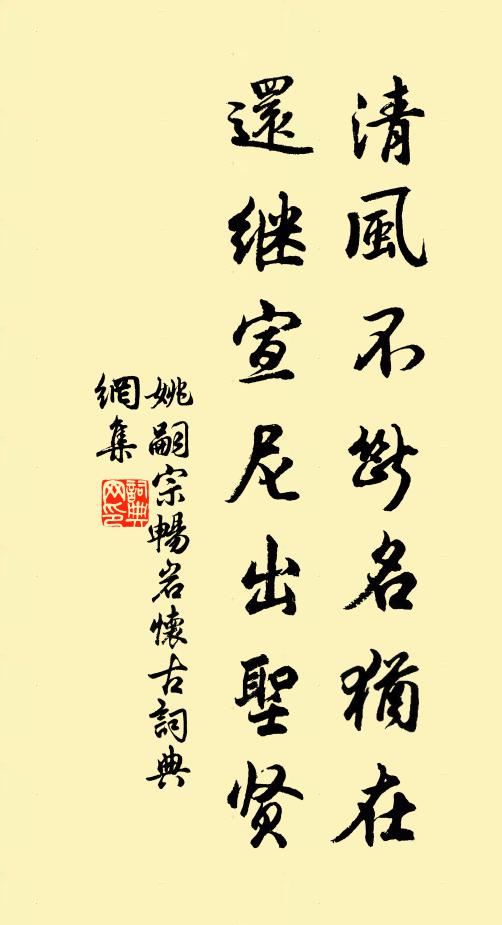 清風不斷名猶在
還继宣尼出聖贤
姚嗣宗暢岩懷古詞典
網集
詞典
网印